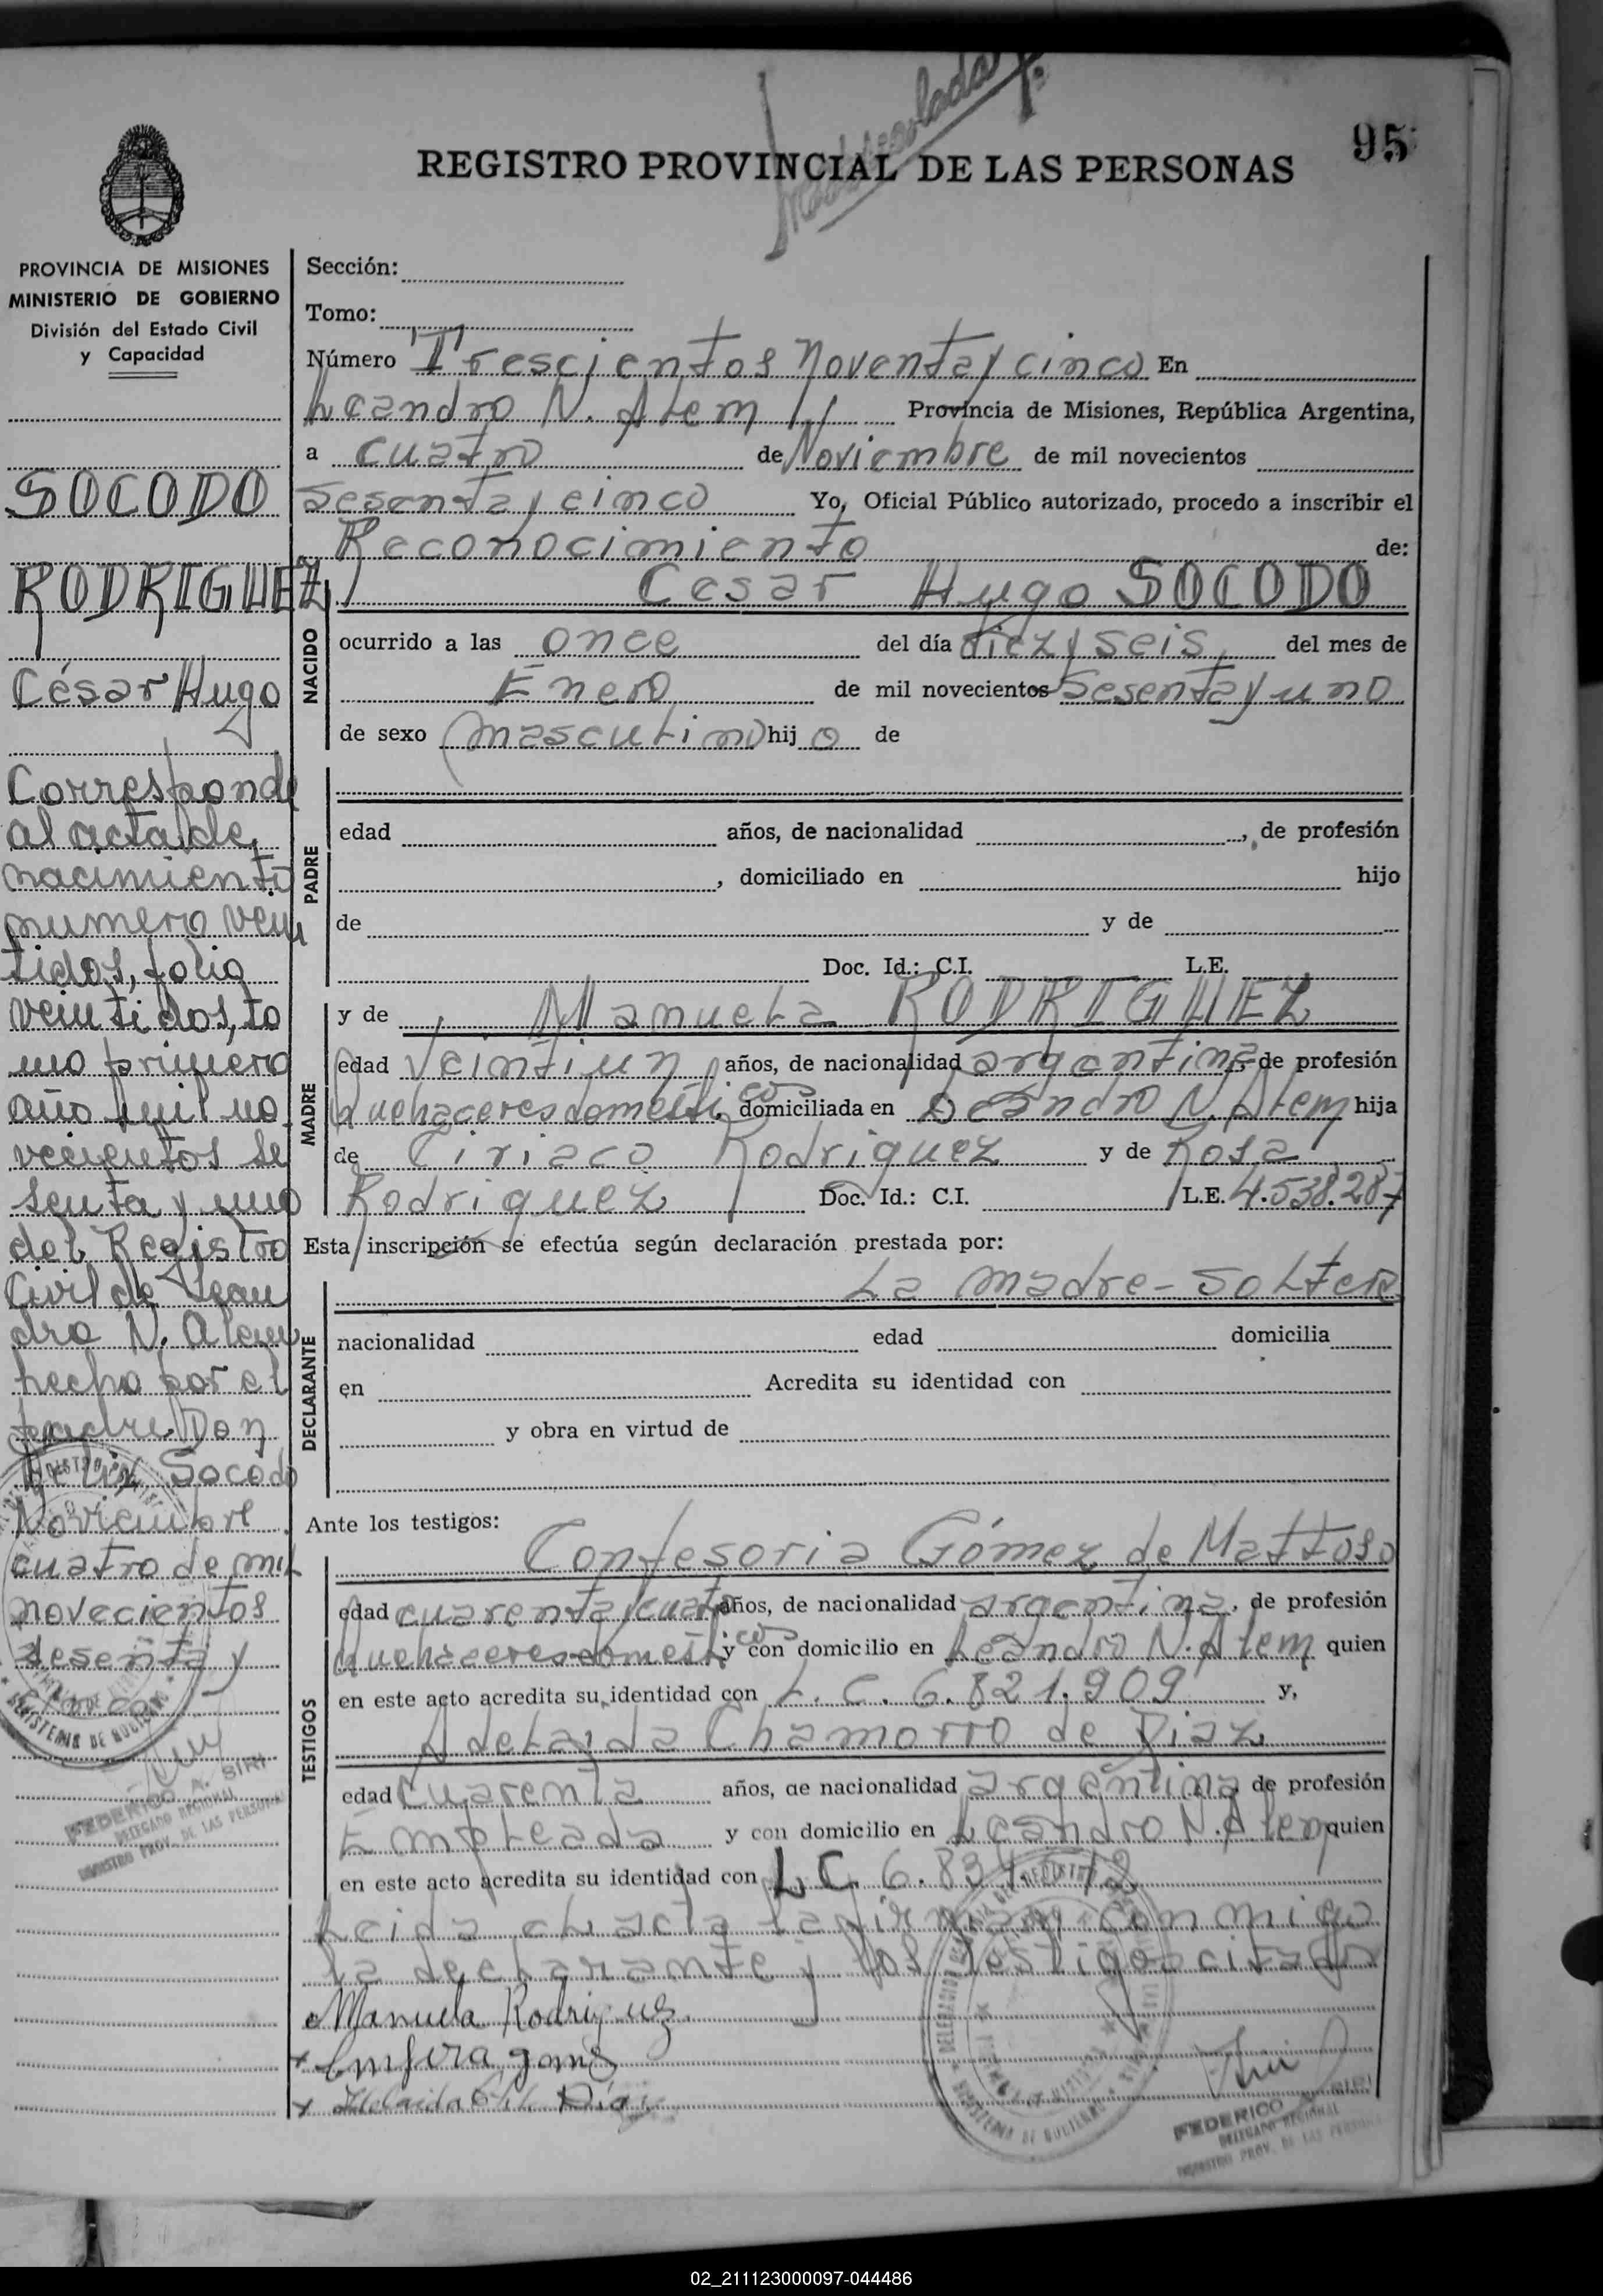 95
REGISTRO PROVINCIAL DE LAS PERSONAS
PROVINCIA DE MISIONES
MINISTERIO DE GOBIERNO
División del Estado Civil
y Capacidad
SOCODO
RODRIGUEZ
César Hugo
Corresponde
al acta de
nacimiento
numero vein
tidos, folio
veintidos, to
mo primero
año mil no
vecientos se
senta y uno
del Registro
Civil de Lean
dro N. Alem
hecho por el
padre Don
Felix Socodo
Noviembre
cuatro de mil
novecientos
sesenta y
cinco
FEDERICO A. SIRI
DELEGADO REGIONAL
REGISTRO PROV. DE LAS PERSONAS
Sección:
Tomo:
Número Trescientos Noventa y cinco En
Leandro N. Alem Provincia de Misiones, República Argentina,
a cuatro de Noviembre de mil novecientos
sesenta y cinco Yo, Oficial Público autorizado, procedo a inscribir el
Reconocimiento de:
Cesar Hugo SOCODO
NACIDO
ocurrido a las once del día diez y seis del mes de
Enero de mil novecientos sesenta y uno
de sexo masculino hijo de
PADRE
edad años, de nacionalidad , de profesión
, domiciliado en hijo
de y de
Doc. Id.: C.I. L.E.
MADRE
y de Manuela RODRIGUEZ
edad veintiun años, de nacionalidad argentina, de profesión
Quehaceres domesticos, domiciliada en Leandro N. Alem hija
de Ciriaco Rodriguez y de Rosa
Rodriguez Doc. Id.: C.I. L.E. 4.538.287
Esta inscripción se efectúa según declaración prestada por:
La madre - soltera
DECLARANTE
nacionalidad edad domicilia
en Acredita su identidad con
y obra en virtud de
Ante los testigos:
Confesoria Gómez de Mattoso
TESTIGOS
edad cuarenta y cuatro años, de nacionalidad argentina, de profesión
Quehaceres domesticos y con domicilio en Leandro N. Alem quien
en este acto acredita su identidad con L. C. 6.821.909 y,
Adelaida Chamorro de Diaz
edad cuarenta años, de nacionalidad argentina, de profesión
Empleada y con domicilio en Leandro N. Alem quien
en este acto acredita su identidad con L.C. 6.834.
Leida el acta la firman conmigo
la declarante y los testigos citados
Manuela Rodriguez
Adelaida Ch. Díaz
FEDERICO A. SIRI
DELEGADO REGIONAL
REGISTRO PROV. DE LAS PERSONAS
02_211123000097-044486